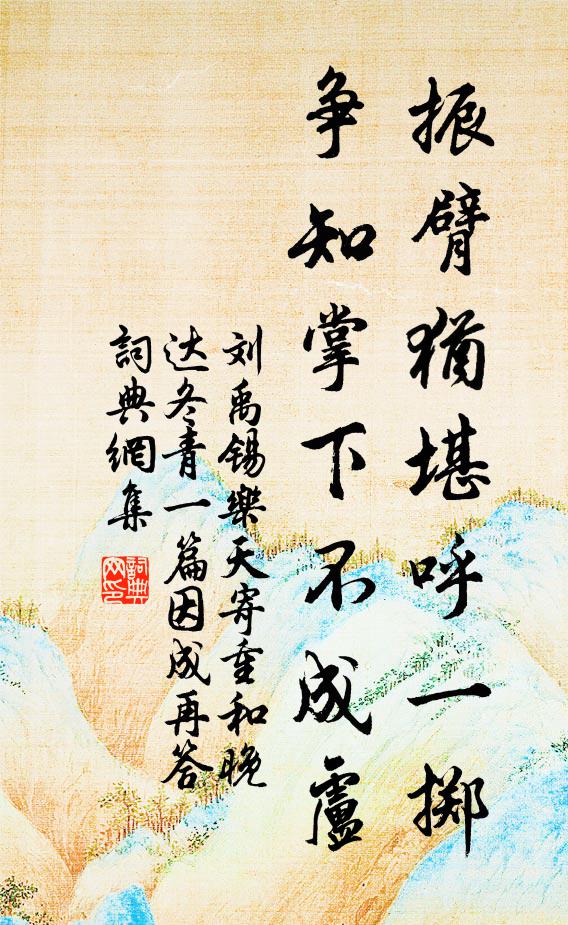 振臂猶堪呼一擲
争知掌下不成盧
刘禹锡樂天寄重和晚
达冬青一篇因成再答
詞典網集
詞典
网印